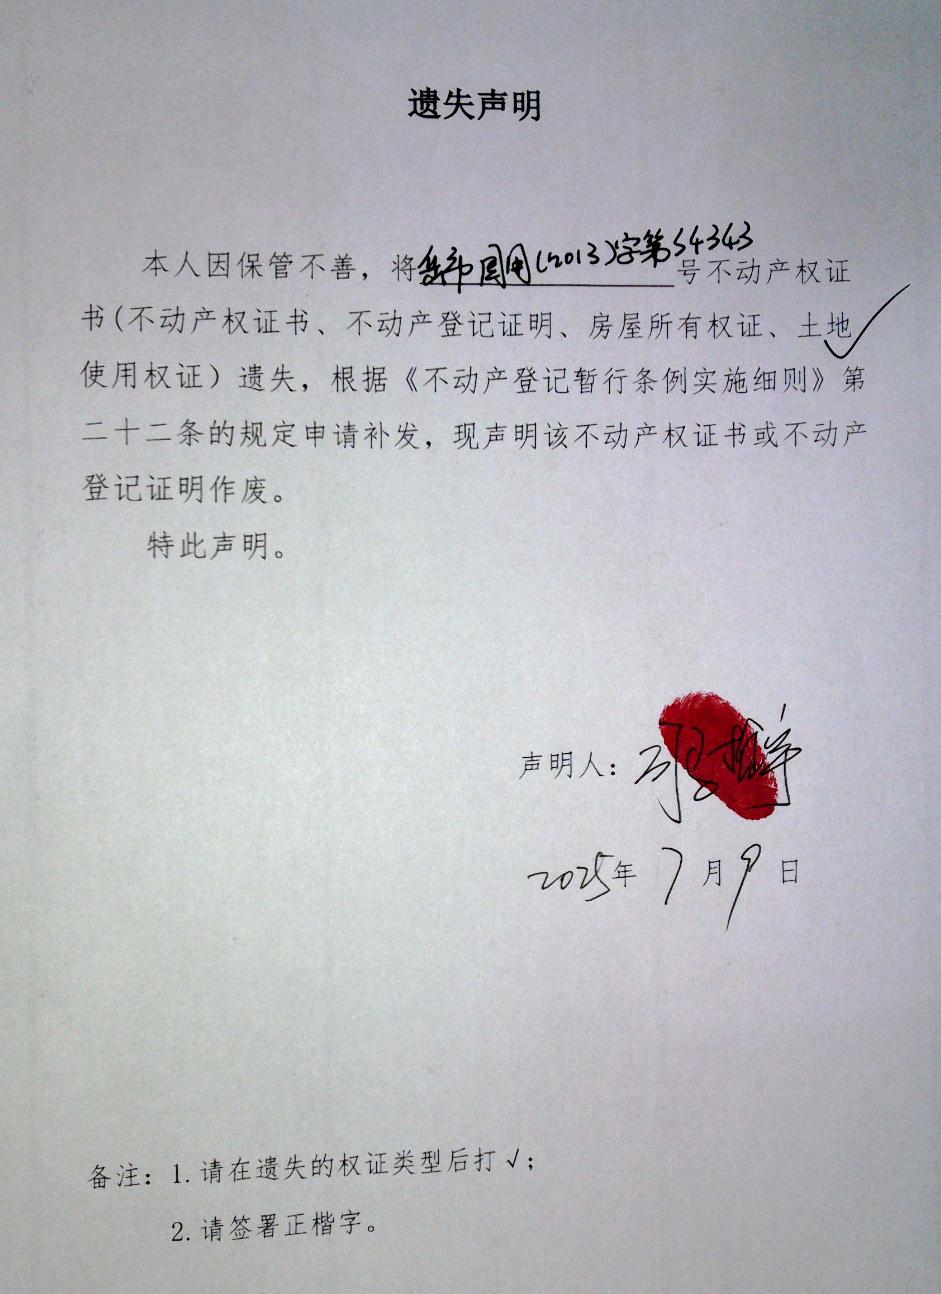 遗失声明
本人因保管不善，将岳市国用(2013)字第S4343号不动产权证
书(不动产权证书、不动产登记证明、房屋所有权证、土地✓
使用权证）遗失，根据《不动产登记暂行条例实施细则》第
二十二条的规定申请补发，现声明该不动产权证书或不动产
登记证明作废。
特此声明。
声明人：
2025年7月9日
备注：1.请在遗失的权证类型后打√；
2.请签署正楷字。